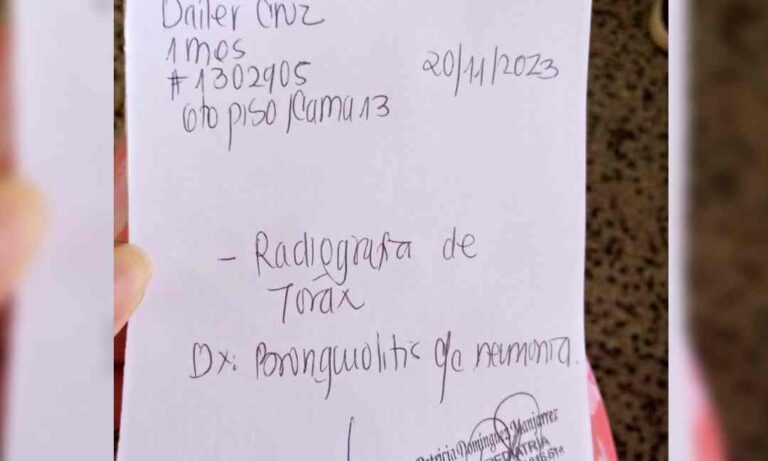 Dailer Cruz
1 mes
#1302905
20/11/2023
6to piso/Cama 13
- Radiografia de
Toráx
Dx: Bronquiolitis q/c neumonia.
Patricia Dominguez Manjarrez
PEDIATRIA